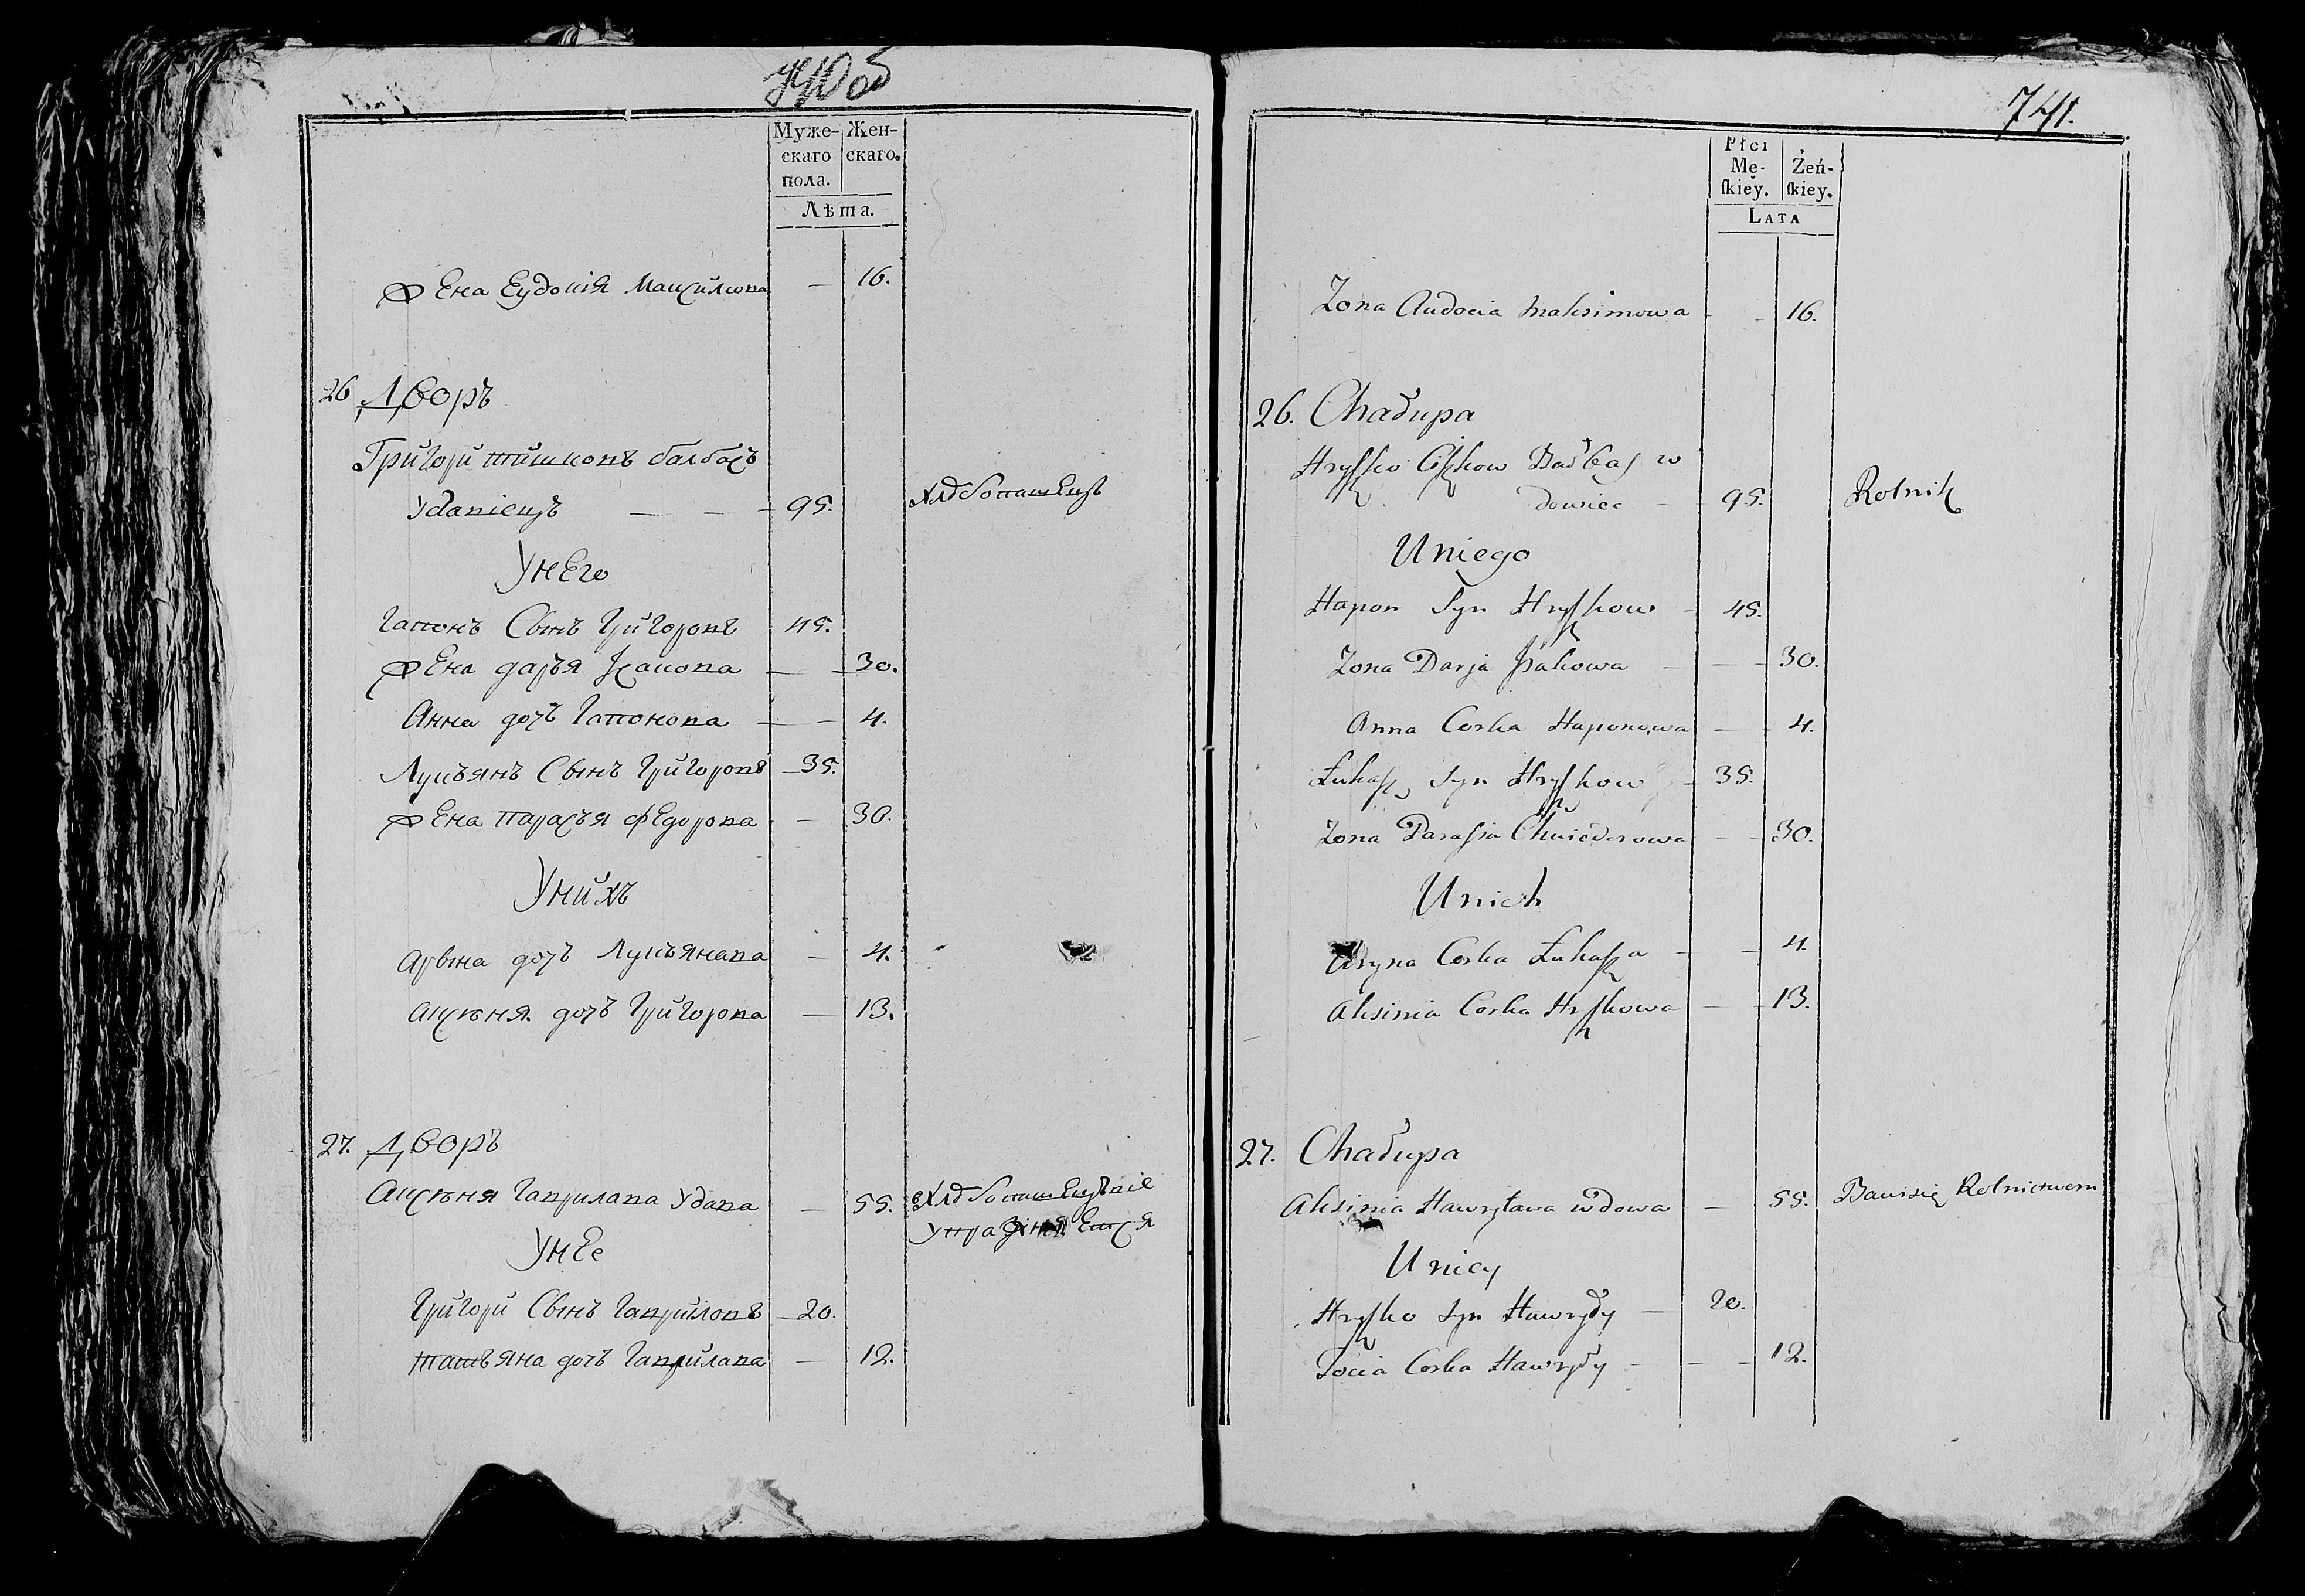 740 об
Муже-
скаго
пола.
Жен-
скаго.
Лѣта.
жена Еудокія Максимова — 16.
26 Дворъ
Григори Тишковъ балбасъ
удавіецъ — — — 95. хлебопашецъ
У него
Гапонъ Сынъ Григоровъ 45.
жена дарья Ісакова — — 30.
Анна дочъ Гапонова — — 4.
Лукъянъ Сынъ Григоровъ — 35.
жена парасья федорова — 30.
У нихъ
арына дочъ Лукъянава — 4.
аксеня дочъ Григорова — 13.
27. Дворъ
аксеня Гаврилава удава — 55. хлебопашецтвіе
упражняется
У нее
Григори Сынъ Гавриловъ — 20.
татьяна дочъ Гаврилава — 12.
741.
Płci
Mę-
ſkiey.
Żeń-
ſkiey.
Lata
Zona Audocia Maksimowa - - 16.
26. Chałupa
Hryſzko Ciſzkow Bałbas w
dowiec - 95. Rolnik
Uniego
Hapon Syn Hryſzkow - 45.
Zona Darja Jsakowa — — - 30.
Anna Corka Haponowa — - 4.
Łukaſz Syn Hryſzkow - 35.
Zona Paraſia Chwiedorowa - - 30.
Unich
Aryna Corka Łukaſza - - 4.
Aksinia Corka Hrſzkowa — - 13.
27. Chałupa
Aksinia Hawryława wdowa — 55. Bawisię Rolnictwem
Uniey
Hryſzko Syn Hawryły — 20.
Tocia Corka Hawryły — — - 12.